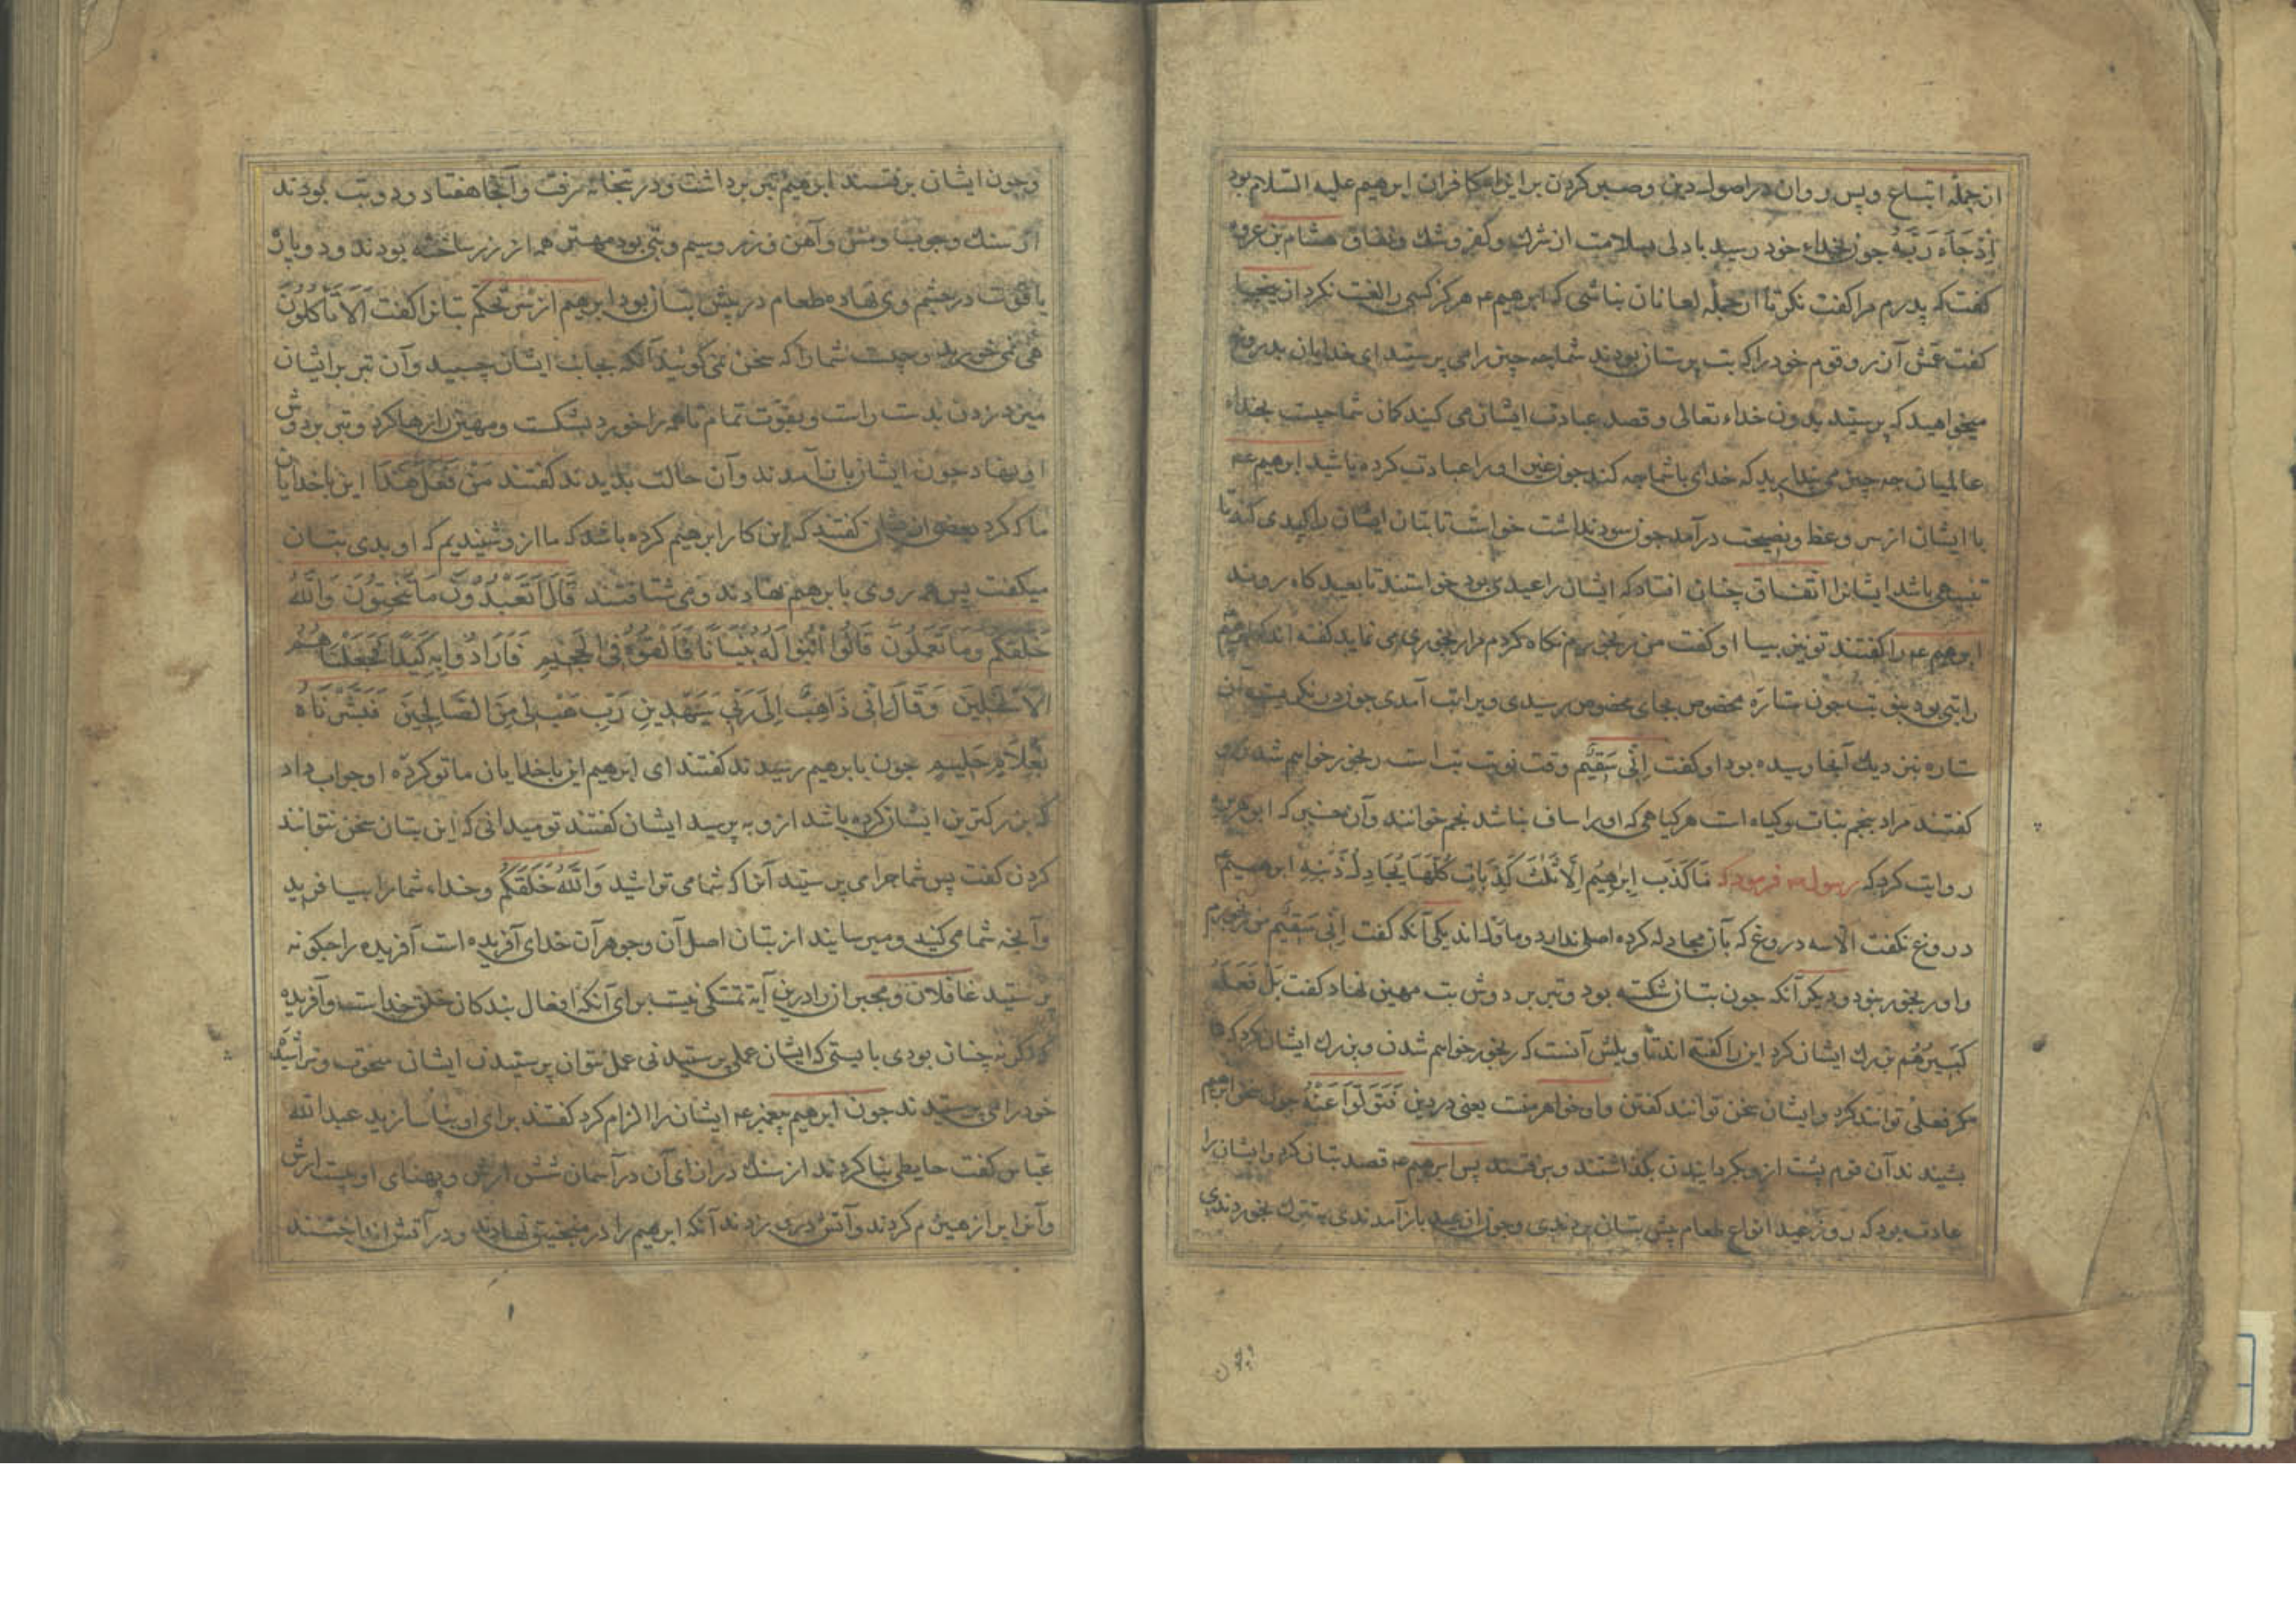 از جمله اتباع و پس روان در اصول دین و صبر کردن بر ایذاء کافران ابرهیم علیه السلام بود
اِذْ جَآءَ رَبَّهُ جون بخداء خود رسید با دلی بسلامت از شرک و کفر و شک و نفاق هشام بن عروه
کفت که پدرم مرا کفت نکر تا از جمله لعانان نباشی که ابرهیم عم هرکز کسی را لعنت نکرد از اینجا
کفت عمش آزر و قوم خود را که بت پرستان بودند شما جه جیز را می پرستید ای خدایان بدروغ
میخواهید که پرستید بدون خداء تعالی و قصد عبادت ایشان می کنید کمان شما جیست بخداء
عالمیان جه جیز می بندارید که خدای با شما جه کند جون غیر او را عبادت کرده باشید ابرهیم عم
با ایشان از سر وعظ و نصیحت در آمد جون سود نداشت خواست تا بتان ایشان را کیدی کند تا
تنبیهی باشد ایشانرا اتفاق چنان افتاد که ایشان را عیدی بود خواستند تا بعید کاه روند
ابرهیم عم را کفتند تو نیز بیا او کفت من رنجورم نکاه کردم مرا رنجوری می نماید کفته اند که ابرهیم
را تبی بود بنوبت جون ستاره مخصوص بجای مخصوص رسیدی ویرا تب آمدی جون در نکریست آن
ستاره نزدیک آنجا رسیده بود او کفت اِنّی سَقیٌم وقت نوبت تب است رنجور خواهم شدن و
کفتند مراد بنجم نبات و کیاه است هر کیاهی که او را ساق نباشد نجم خوانند و آن خبر که ابو هریره
روایت کرد که رسول عم فرمود که مَا کَذَبَ اِبْرهیُم اِلَّا ثَلٰثَ کَذِبَاتٍ کُلّهَا یُجَادِلُ دینهِ ابرهیم
دروغ نکفت الا سه دروغ که بآن مجادله کرده اصلی ندارد و ماؤل اند یکی آنکه کفت اِنّی سَقیٌم من رنجورم
و او رنجور نبود و دیکر آنکه جون بتان شکسته بود و تبر بر دوش بت مهین نهاد کفت بَل فَعَلَهُ
کَبیرُهُم بزرک ایشان کرد این را کفته اند تأویلش آنست که رنجور خواهم شدن و بزرک ایشان کرد که
مکر فعلی توانند کرد و ایشان سخن توانند کفتن و او خواهر منست یعنی در دین فَتَوَلَّوا عَنْهُ جون سخن ابرهیم
بشنیدند آن قوم پشت ازو بکردانیدند بکذاشتند و برفتند پس ابرهیم عم قصد بتان کرد و ایشان را
عادت بود که روز عید انواع طعام پیش بتان بردندی و جون از عید باز آمدندی به تبرک بخوردندی
وچون
و جون ایشان برفتند ابرهیم تبر برداشت و در بتخانه رفت و آنجا هفتاد و دو بت بودند
از سنک و جوب و مس و آهن و زر و سیم و بتی بود مهین همه از زر ساخته بودند و دو پاره
یاقوت در چشم وی نهاده طعام در پیش بتان بود ابرهیم از سر تحکم بتانرا کفت اَلَا تَأکُلُونَ
هی نمی خورید و جیست شما را که سخن نمی کوئید آنکه بجانب ایشان جسبید و آن تبر بر ایشان
میزد زدن بدست راست و بقوت تمام تا همه را خورد بشکست و مهین را رها کرد و تبر بر دوش
او نهاد جون ایشان باز آمدند و آن حالت بدیدند کفتند مَنْ فَعَلَ هٰذَا این با خدایان
ما که کرد بعضی از ایشان کفتند که این کار ابرهیم کرده باشد که ما ازو شنیدیم که او بدی بتان
میکفت پس همه روی بابرهیم نهادند و می شتافتند قَالَ اَتَعْبُدُونَ مَا تَنْحِتُونَ وَاللّٰهُ
خَلَقَکُم وَمَا تَعمَلُونَ قَالُوا ابْنُوا لَهُ بُنْیَانًا فَاَلْقُوهُ فِی الْجَحیمِ فَاَرَادُوا بِهِ کَیْدًا فَجَعَلْنَاهُمُ
الْاَسْفَلینَ وَقَالَ اِنّی ذَاهِبٌ اِلٰی رَبّی سَیَهْدینِ رَبِّ هَبْ لی مِنَ الصَّالِحینَ فَبَشَّرْنَاهُ
بِغُلَامٍ حَلیمٍ جون بابرهیم رسیدند کفتند ای ابرهیم این با خدایان ما تو کردهٔ او جواب داد
که بزرکترین ایشان کرده باشد ازو به پرسید ایشان کفتند تو میدانی که این بتان سخن نتوانند
کردن کفت پس شما جرا می پرستید آنرا که شما می تراشید وَاللّٰهُ خَلَقَکُمْ و خداء شما را بیافرید
و آنچه شما می کنید و میرسایند از بتان اصل آن و جوهر آن خدای آفریده است آفریده را جکونه
پرستید غافلان و مجبران را درین آیة تمسکی نیست برای آنکه افعال بندکان خلق خداست و آفریده
که اکر نه چنان بودی بایستی که ایشان عمل پرستیدندی عمل نتوان پرستیدن ایشان منحوت و تراشیده
خود را می پرستیدند جون ابرهیم پیغمبر عم ایشان را الزام کرد کفتند برای او بنا سازید عبد الله
عباس کفت حایطی بنا کردند از سنک درازای آن در آسمان شش ارش و پهنای او بیست ارش
و آنرا پر از هیزم کردند و آتش دری زدند آنکه ابرهیم را در منجنیق نهادند و در آتش انداختند